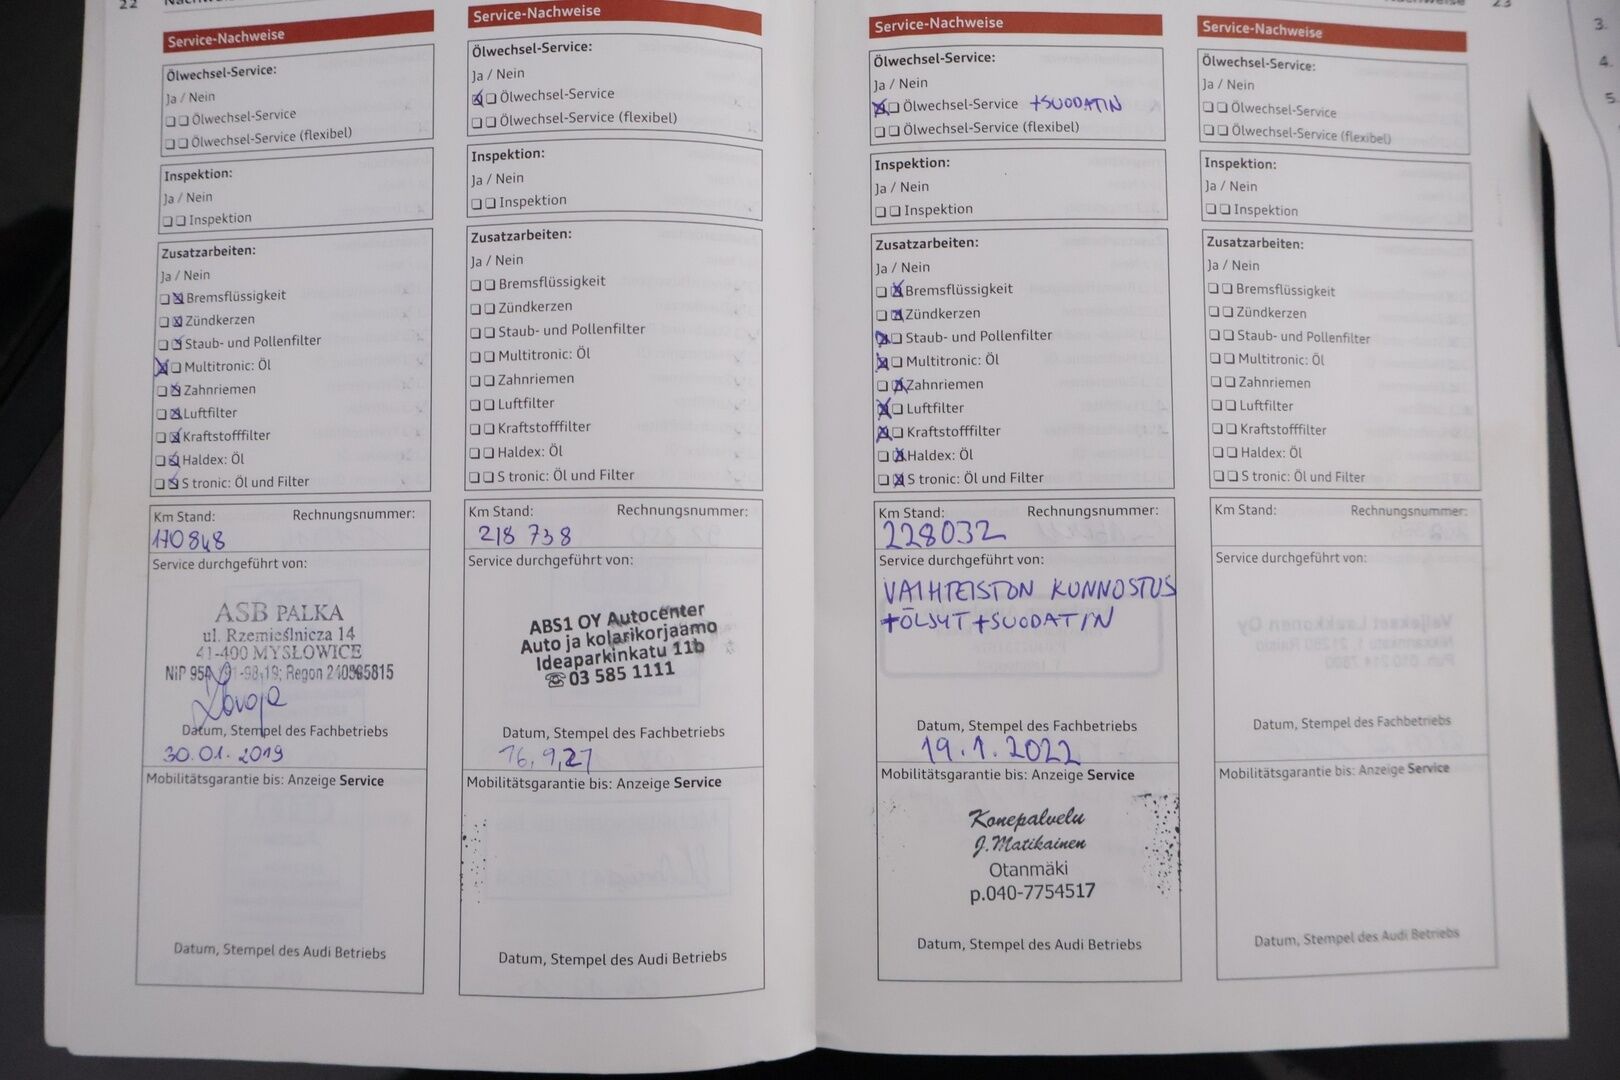 22
Service-Nachweise
Ölwechsel-Service:
Ja / Nein
Ölwechsel-Service
Ölwechsel-Service (flexibel)
Inspektion:
Ja / Nein
Inspektion
Zusatzarbeiten:
Ja / Nein
Bremsflüssigkeit
Zündkerzen
Staub- und Pollenfilter
Multitronic: Öl
Zahnriemen
Luftfilter
Kraftstofffilter
Haldex: Öl
S tronic: Öl und Filter
Km Stand: Rechnungsnummer:
170848
Service durchgeführt von:
ASB PALKA
ul. Rzemieślnicza 14
41-400 MYSŁOWICE
Datum, Stempel des Fachbetriebs
30.01.2019
Mobilitätsgarantie bis: Anzeige Service
Datum, Stempel des Audi Betriebs
Service-Nachweise
Ölwechsel-Service:
Ja / Nein
Ölwechsel-Service
Ölwechsel-Service (flexibel)
Inspektion:
Ja / Nein
Inspektion
Zusatzarbeiten:
Ja / Nein
Bremsflüssigkeit
Zündkerzen
Staub- und Pollenfilter
Multitronic: Öl
Zahnriemen
Luftfilter
Kraftstofffilter
Haldex: Öl
S tronic: Öl und Filter
Km Stand: Rechnungsnummer:
218 738
Service durchgeführt von:
ABS1 OY Autocenter
Auto ja kolarikorjaamo
Ideaparkinkatu 11b
☎03 585 1111
Datum, Stempel des Fachbetriebs
16,9,21
Mobilitätsgarantie bis: Anzeige Service
Datum, Stempel des Audi Betriebs
23
Service-Nachweise
Ölwechsel-Service:
Ja / Nein
Ölwechsel-Service +SUODATIN
Ölwechsel-Service (flexibel)
Inspektion:
Ja / Nein
Inspektion
Zusatzarbeiten:
Ja / Nein
Bremsflüssigkeit
Zündkerzen
Staub- und Pollenfilter
Multitronic: Öl
Zahnriemen
Luftfilter
Kraftstofffilter
Haldex: Öl
S tronic: Öl und Filter
Km Stand: Rechnungsnummer:
228032
Service durchgeführt von:
VAIHTEISTON KUNNOSTUS
+ÖLJYT +SUODATIN
Datum, Stempel des Fachbetriebs
19.1.2022
Mobilitätsgarantie bis: Anzeige Service
Konepalvelu
J.Matikainen
Otanmäki
p.040-7754517
Datum, Stempel des Audi Betriebs
Service-Nachweise
Ölwechsel-Service:
Ja / Nein
Ölwechsel-Service
Ölwechsel-Service (flexibel)
Inspektion:
Ja / Nein
Inspektion
Zusatzarbeiten:
Ja / Nein
Bremsflüssigkeit
Zündkerzen
Staub- und Pollenfilter
Multitronic: Öl
Zahnriemen
Luftfilter
Kraftstofffilter
Haldex: Öl
S tronic: Öl und Filter
Km Stand: Rechnungsnummer:
Service durchgeführt von:
Datum, Stempel des Fachbetriebs
Mobilitätsgarantie bis: Anzeige Service
Datum, Stempel des Audi Betriebs
3.
4.
5